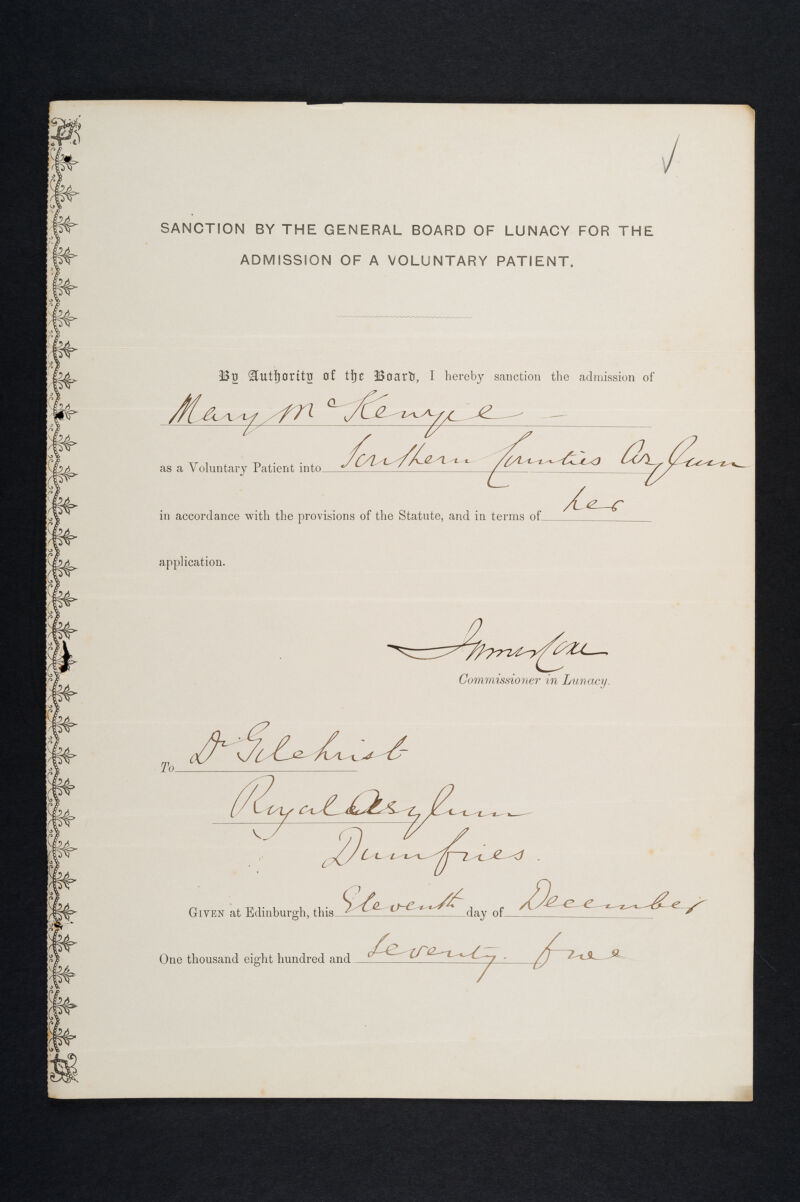 SANCTION BY THE GENERAL BOARD OF LUNACY FOR THE
ADMISSION OF A VOLUNTARY PATIENT.
By Authority of the Board, I hereby sanction the admission of
Mary McKenzie –
as a Voluntary Patient into Southern Counties Asylum
in accordance with the provisions of the Statute, and in terms of her
application.
James Coxe
Commissioner in Lunacy.
To Dr Gilchrist
Royal Asylum
Dumfries.
GIVEN at Edinburgh, this Eleventh day of December
One thousand eight hundred and seventy. five